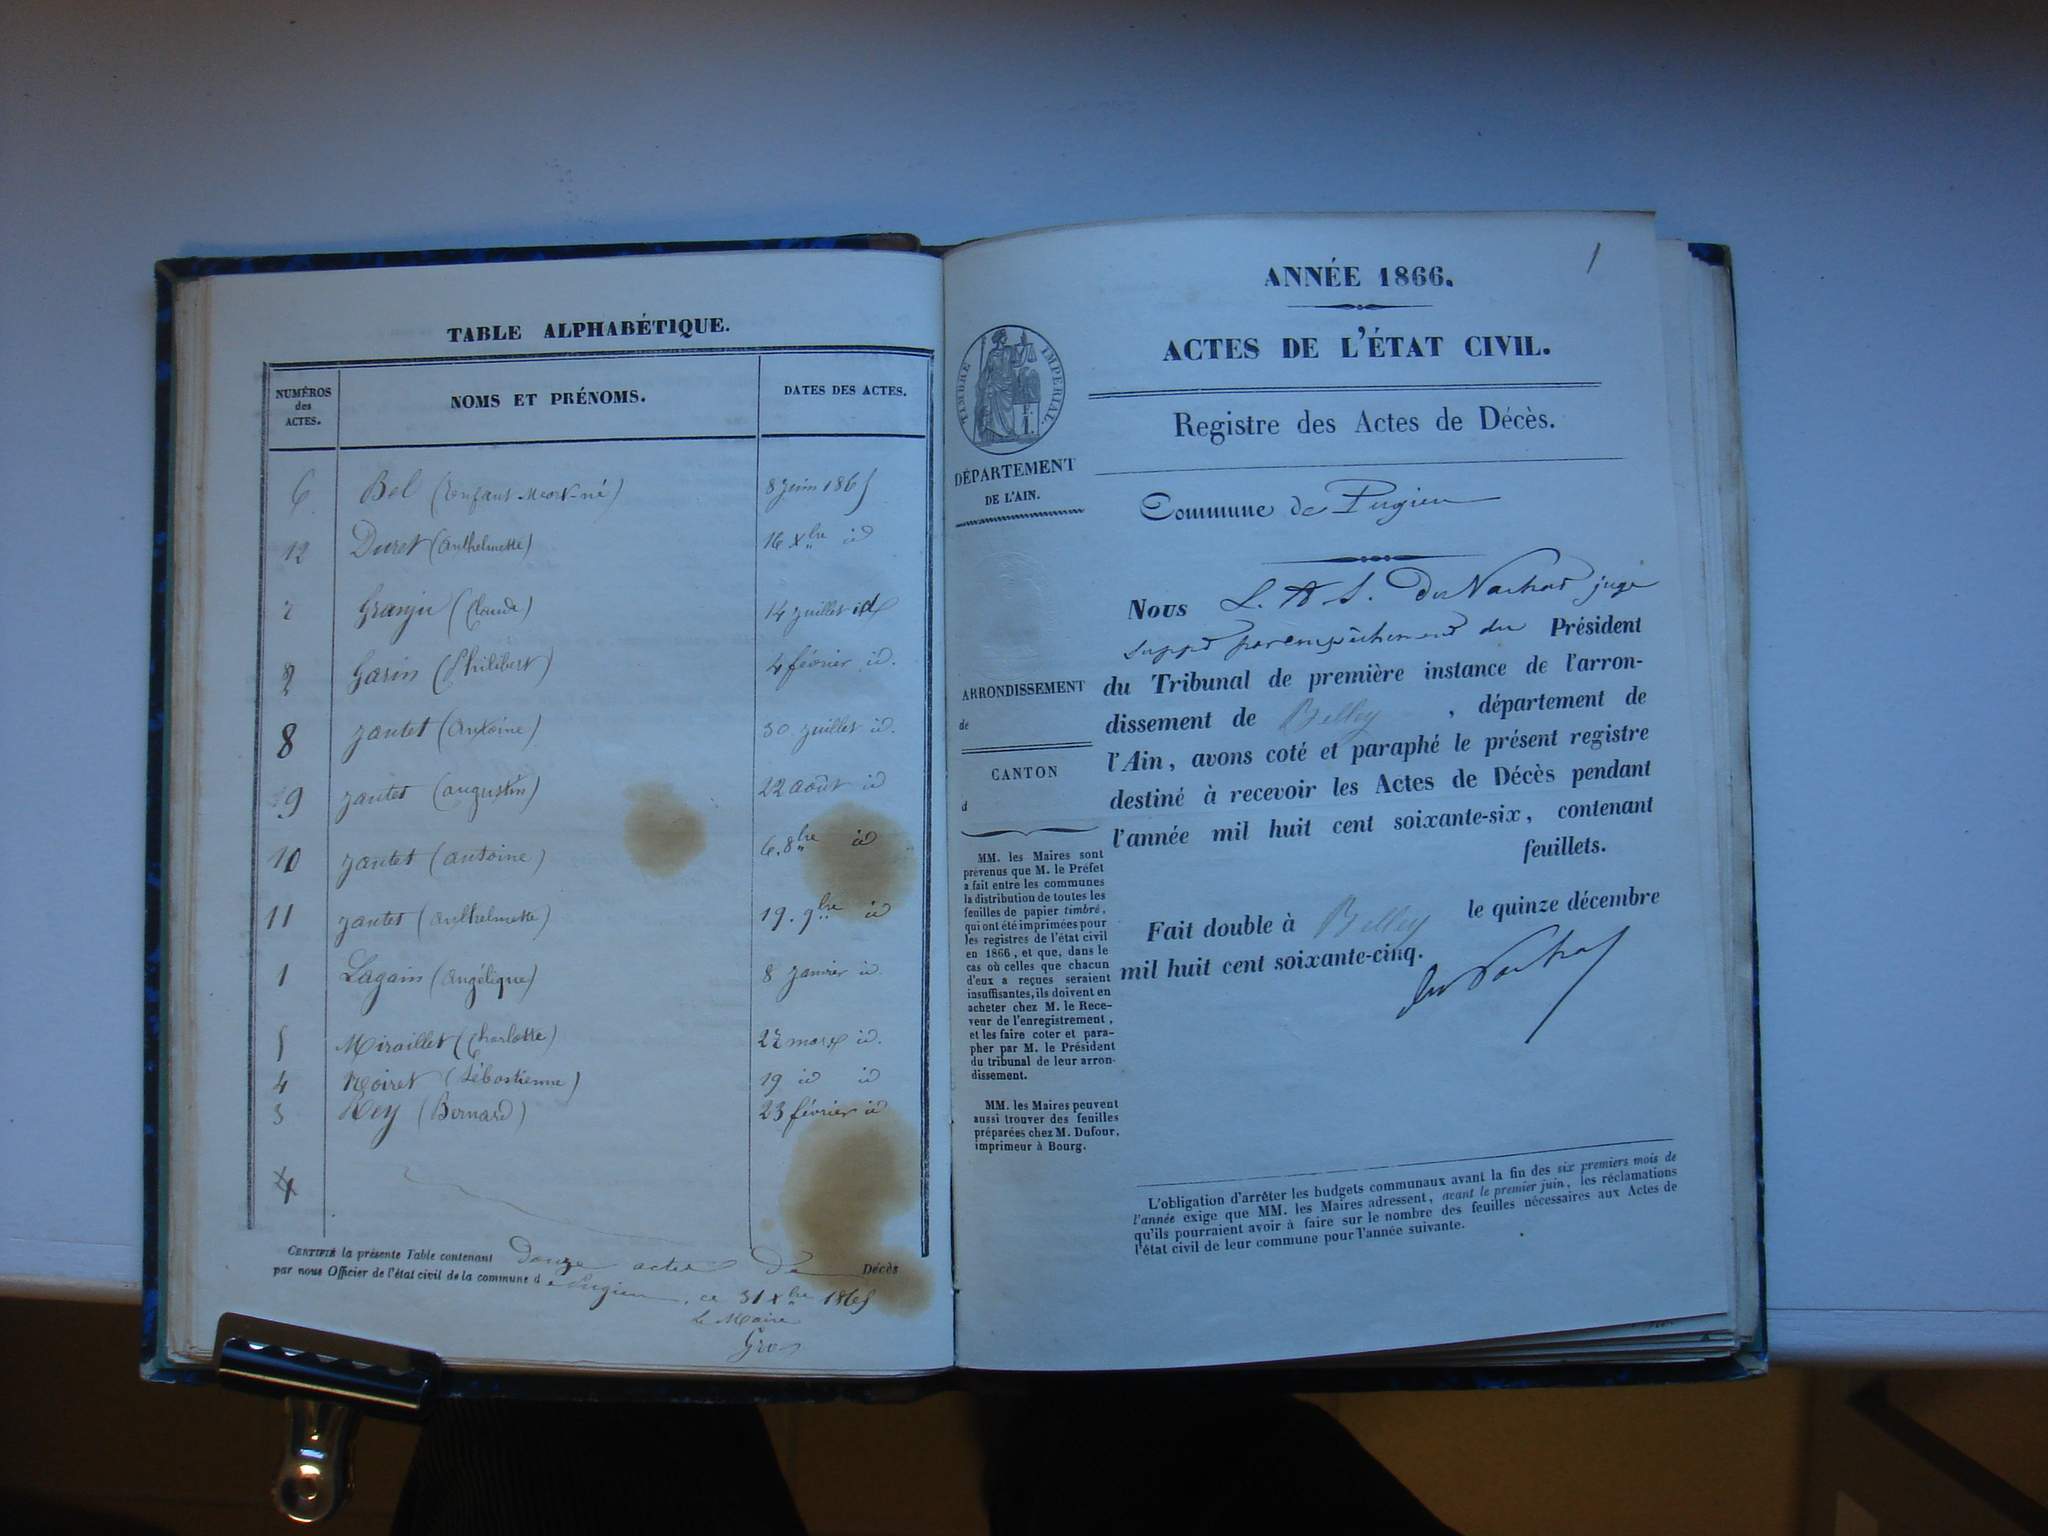 TABLE ALPHABÉTIQUE.
NUMÉROS des ACTES. NOMS ET PRÉNOMS. DATES DES ACTES.
6 Bel (enfant mort-né) 8 juin 1865
12 Duret (Anthelmette) 16 Xbre id
7 Granju (Claude) 14 juillet id
2 Garin (Philibert) 4 février id.
8 Jantet (Antoine) 30 juillet id.
9 Jantet (Augustin) 22 août id
10 Jantet (Antoine) 6. 8bre id
11 Jantet (Anthelmette) 19. 9bre id
1 Lagain (Angélique) 8 janvier id
5 Miraillet (Charlotte) mars id.
4 Noiret (Sébastienne) 19 id id
3 Rey (Bernard) 23 février id
CERTIFIÉ la présente Table contenant Douze actes De Décès
par nous Officier de l'état civil de la commune de Pugieu, ce 31 Xbre 1865
Le Maire
Gros
1
ANNÉE 1866.
ACTES DE L'ÉTAT CIVIL.
Registre des Actes de Décès.
TIMBRE IMPÉRIAL.
F. 1.
DÉPARTEMENT
DE L'AIN.
ARRONDISSEMENT
de
CANTON
d
MM. les Maires sont
prévenus que M. le Préfet
a fait entre les communes
la distribution de toutes les
feuilles de papier timbré,
qui ont été imprimées pour
les registres de l'état civil
en 1866, et que, dans le
cas où celles que chacun
d'eux a reçues seraient
insuffisantes, ils doivent en
acheter chez M. le Rece-
veur de l'enregistrement,
et les faire coter et para-
pher par M. le Président
du tribunal de leur arron-
dissement.
MM. les Maires peuvent
aussi trouver des feuilles
préparées chez M. Dufour,
imprimeur à Bourg.
Commune de Pugieu
Nous L. A. S. juge
supp par empêchement du Président
du Tribunal de première instance de l'arron-
dissement de Belley, département de
l'Ain, avons coté et paraphé le présent registre
destiné à recevoir les Actes de Décès pendant
l'année mil huit cent soixante-six, contenant
feuillets.
Fait double à Belley le quinze décembre
mil huit cent soixante-cinq.
L'obligation d'arrêter les budgets communaux avant la fin des six premiers mois de
l'année exige que MM. les Maires adressent, avant le premier juin, les réclamations
qu'ils pourraient avoir à faire sur le nombre des feuilles nécessaires aux Actes de
l'état civil de leur commune pour l'année suivante.